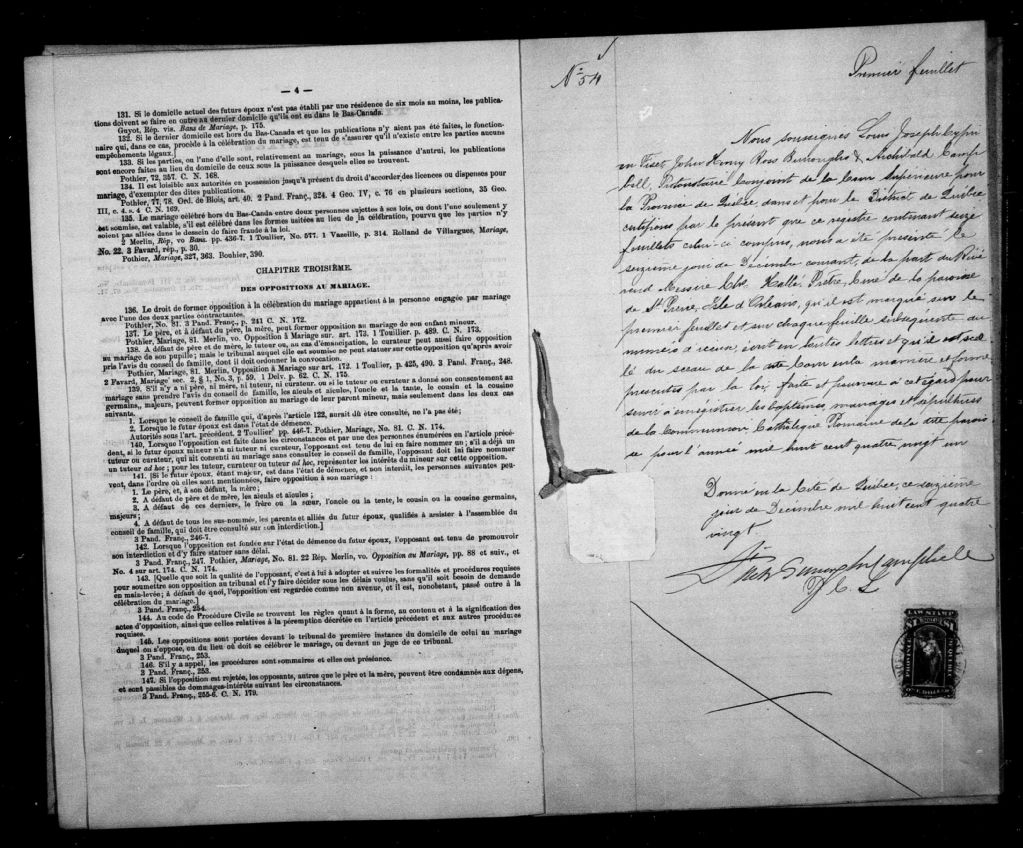 — 4 —
131. Si le domicile actuel des futurs époux n'est pas établi par une résidence de six mois au moins, les publica-
tions doivent se faire en outre au dernier domicile qu'ils ont eu dans le Bas-Canada.
Guyot, Rép. vis. Bans de Mariage, p. 175.
132. Si le dernier domicile est hors du Bas-Canada et que les publications n'y aient pas été faites, le fonction-
naire qui, dans ce cas, procède à la célébration du mariage, est tenu de s'assurer qu'il n'existe entre les parties aucuns
empêchements légaux.
133. Si les parties, ou l'une d'elle sont, relativement au mariage, sous la puissance d'autrui, les publications
sont encore faites au lieu du domicile de ceux sous la puissance desquels elles se trouvent.
Pothier, 72, 357. C. N. 168.
134. Il est loisible aux autorités en possession jusqu'à présent du droit d'accorder des licences ou dispenses pour
mariage, d'exempter des dites publications.
Pothier, 77, 78. Ord. de Blois, art. 40. 2 Pand. Franç., 324. 4 Geo. IV, c. 76 en plusieurs sections, 35 Geo.
III, c. 4. s. 4 C. N. 169.
135. Le mariage célébré hors du Bas-Canda entre deux personnes sujettes à ses lois, ou dont l'une seulement y
est soumise, est valable, s'il est célébré dans les formes usitées au lieu de la célébration, pourvu que les parties n'y
soient pas allées dans le dessein de faire fraude à la loi.
2 Merlin, Rép, vo Bans. pp. 436-7. 1 Toullier, No. 577. 1 Vazeille, p. 314. Rolland de Villargues, Mariage,
No. 22. 3 Favard, rép., p. 30.
Pothier, Mariage, 327, 363. Bouhier, 390.
CHAPITRE TROISIÈME.
DES OPPOSITIONS AU MARIAGE.
136. Le droit de former opposition à la célébration du mariage appartient à la personne engagée par mariage
avec l'une des deux parties contractantes.
Pothier, No. 81. 3 Pand. Franç., p. 241 C. N. 172.
137. Le père, et à défaut du père, la mère, peut former opposition au mariage de son enfant mineur.
Pothier, Mariage, 81. Merlin, vo. Opposition à Mariage sur. art. 173. 1 Touillier. p. 489. C. N. 173.
138. A défaut de père et de mère, le tuteur ou, au cas d'émancipation, le curateur peut aussi faire opposition
au mariage de son pupille; mais le tribunal auquel elle est soumise ne peut statuer sur cette opposition qu'après avoir
pris l'avis du conseil de famille, dont il doit ordonner la convocation.
Pothier, Mariage, 81. Merlin, Opposition à Mariage sur art. 172. 1 Toullier, p. 425, 490. 3 Pand. Franç., 248.
2 Favard, Mariage sec. 2, § 1, No. 3, p. 59. 1 Delv. p. 62. C. N. 175.
139. S'il n'y a ni père, ni mère, ni tuteur, ni curateur, ou si le tuteur ou curateur a donné son consentement au
mariage sans prendre l'avis du conseil de famille, les aïeuls et aïeules, l'oncle et la tante, le cousin et la cousine
germains, majeurs, peuvent former opposition au mariage de leur parent mineur, mais seulement dans les deux cas
suivants.
1. Lorsque le conseil de famille qui, d'après l'article 122, aurait dû être consulté, ne l'a pas été;
2. Lorsque le futur époux est dans l'état de démence.
Autorités sous l'art. précédent. 2 Toullier' pp. 446-7. Pothier, Mariage, No. 81. C. N. 174.
140. Lorsque l'opposition est faite dans les circonstances et par une des personnes énumérées en l'article précé-
dent, si le futur époux mineur n'a ni tuteur ni curateur, l'opposant est tenu de lui en faire nommer un; s'il a déjà un
tuteur ou curateur, qui ait consenti au mariage sans consulter le conseil de famille, l'opposant doit lui faire nommer
un tuteur ad hoc; pour les tuteur, curateur ou tuteur ad hoc, représenter les intérêts du mineur sur cette opposition.
141. [Si le futur époux, étant majeur, est dans l'état de démence, et non interdit, les personnes suivantes peu-
vent, dans l'ordre où elles sont mentionnées, faire opposition à son mariage:
1. Le père, et, à son défaut, la mère;
2. A défaut de père et de mère, les aïeuls et aïeules;
3. A défaut de ces derniers, le frère ou la sœur, l'oncle ou la tente, le cousin ou la cousine germains,
majeurs;
4. A défaut de tous les sus-nommés, les parents et alliés du futur époux, qualifiés à assister à l'assemblée du
conseil de famille, qui doit être consulté sur son interdiction.]
3 Pand. Franç., 246-7.
142. Lorsque l'opposition est fondée sur l'état de démence du futur époux, l'opposant est tenu de promouvoir
son interdiction et d'y faire statuer sans délai.
3 Pand. Franç., 247. Pothier, Mariage, No. 81. 22 Rép. Merlin, vo. Opposition au Mariage, pp. 88 et suiv., et
No. 4 sur art. 174. C. N. 174.
143. [Quelle que soit la qualité de l'opposant, c'est à lui à adopter et suivre les formalités et procédures requises
pour soumettre son opposition au tribunal et l'y faire décider sous les délais voulus, sans qu'il soit besoin de demande
en main-levée; à défaut de quoi, l'opposition est regardée comme non avenue, et il est, nonobstant, passé outre à la
célébration du mariage.]
3 Pand. Franç., 254.
144. Au code de Procédure Civile se trouvent les règles quant à la forme, au contenu et à la signification des
actes d'opposition, ainsi que celles relatives à la péremption décrétée en l'article précédent et aux autres procédures
requises.
145. Les oppositions sont portées devant le tribunal de première instance du domicile de celui au mariage
duquel on s'oppose, ou du lieu où doit se célébrer le mariage, ou devant un juge de ce tribunal.
3 Pand. Franç., 253.
146. S'il y a appel, les procédures sont sommaires et elles ont préséance.
3 Pand. Franç., 253.
147. Si l'opposition est rejetée, les opposants, autres que le père et la mère, peuvent être condamnés aux dépens,
et sont passibles de dommages-intérêts suivant les circonstances.
3 Pand. Franç., 255-6. C. N. 179.
No 54
Premier feuillet
Nous soussignés Louis Joseph Cyprien
Fiset, John Henry Ross Burroughs & Archibald Camp
bell, Protonotaire Conjoint de la Cour Supérieure pour
la Province de Québec dans et pour le District de Québec
certifions par le présent que ce registre contenant seize
feuillets celui-ci compris, nous a été présenté le
seizième jour de Décembre courant, de la part du Révé
rend Messire Chs. Hallé, Prêtre, Curé de la paroisse
de St. Pierre, Isle d'Orléans, qu'il est marqué sur le
premier feuillet et sur chaque feuille subséquente du
numéro d'icieux, écrit en toutes lettres et qu'il est scel
lé du sceau de la dite Cour en la manière et forme
prescrites par la loi faite et pourvue à cet égard pour
servir à enrégistrer les baptêmes, mariages et sépultures
de la Communion Catholique Romaine de la dite parois
se pour l'année mil huit cent quatre vingt un
Donné en la Cité de Québec, ce seizième
jour de Décembre mil huit cent quatre
vingt.
Fiset Burroughs Campbell
P.C.S
LAW STAMP
$1 $1
PROVINCE
QUEBEC
ONE DOLLAR